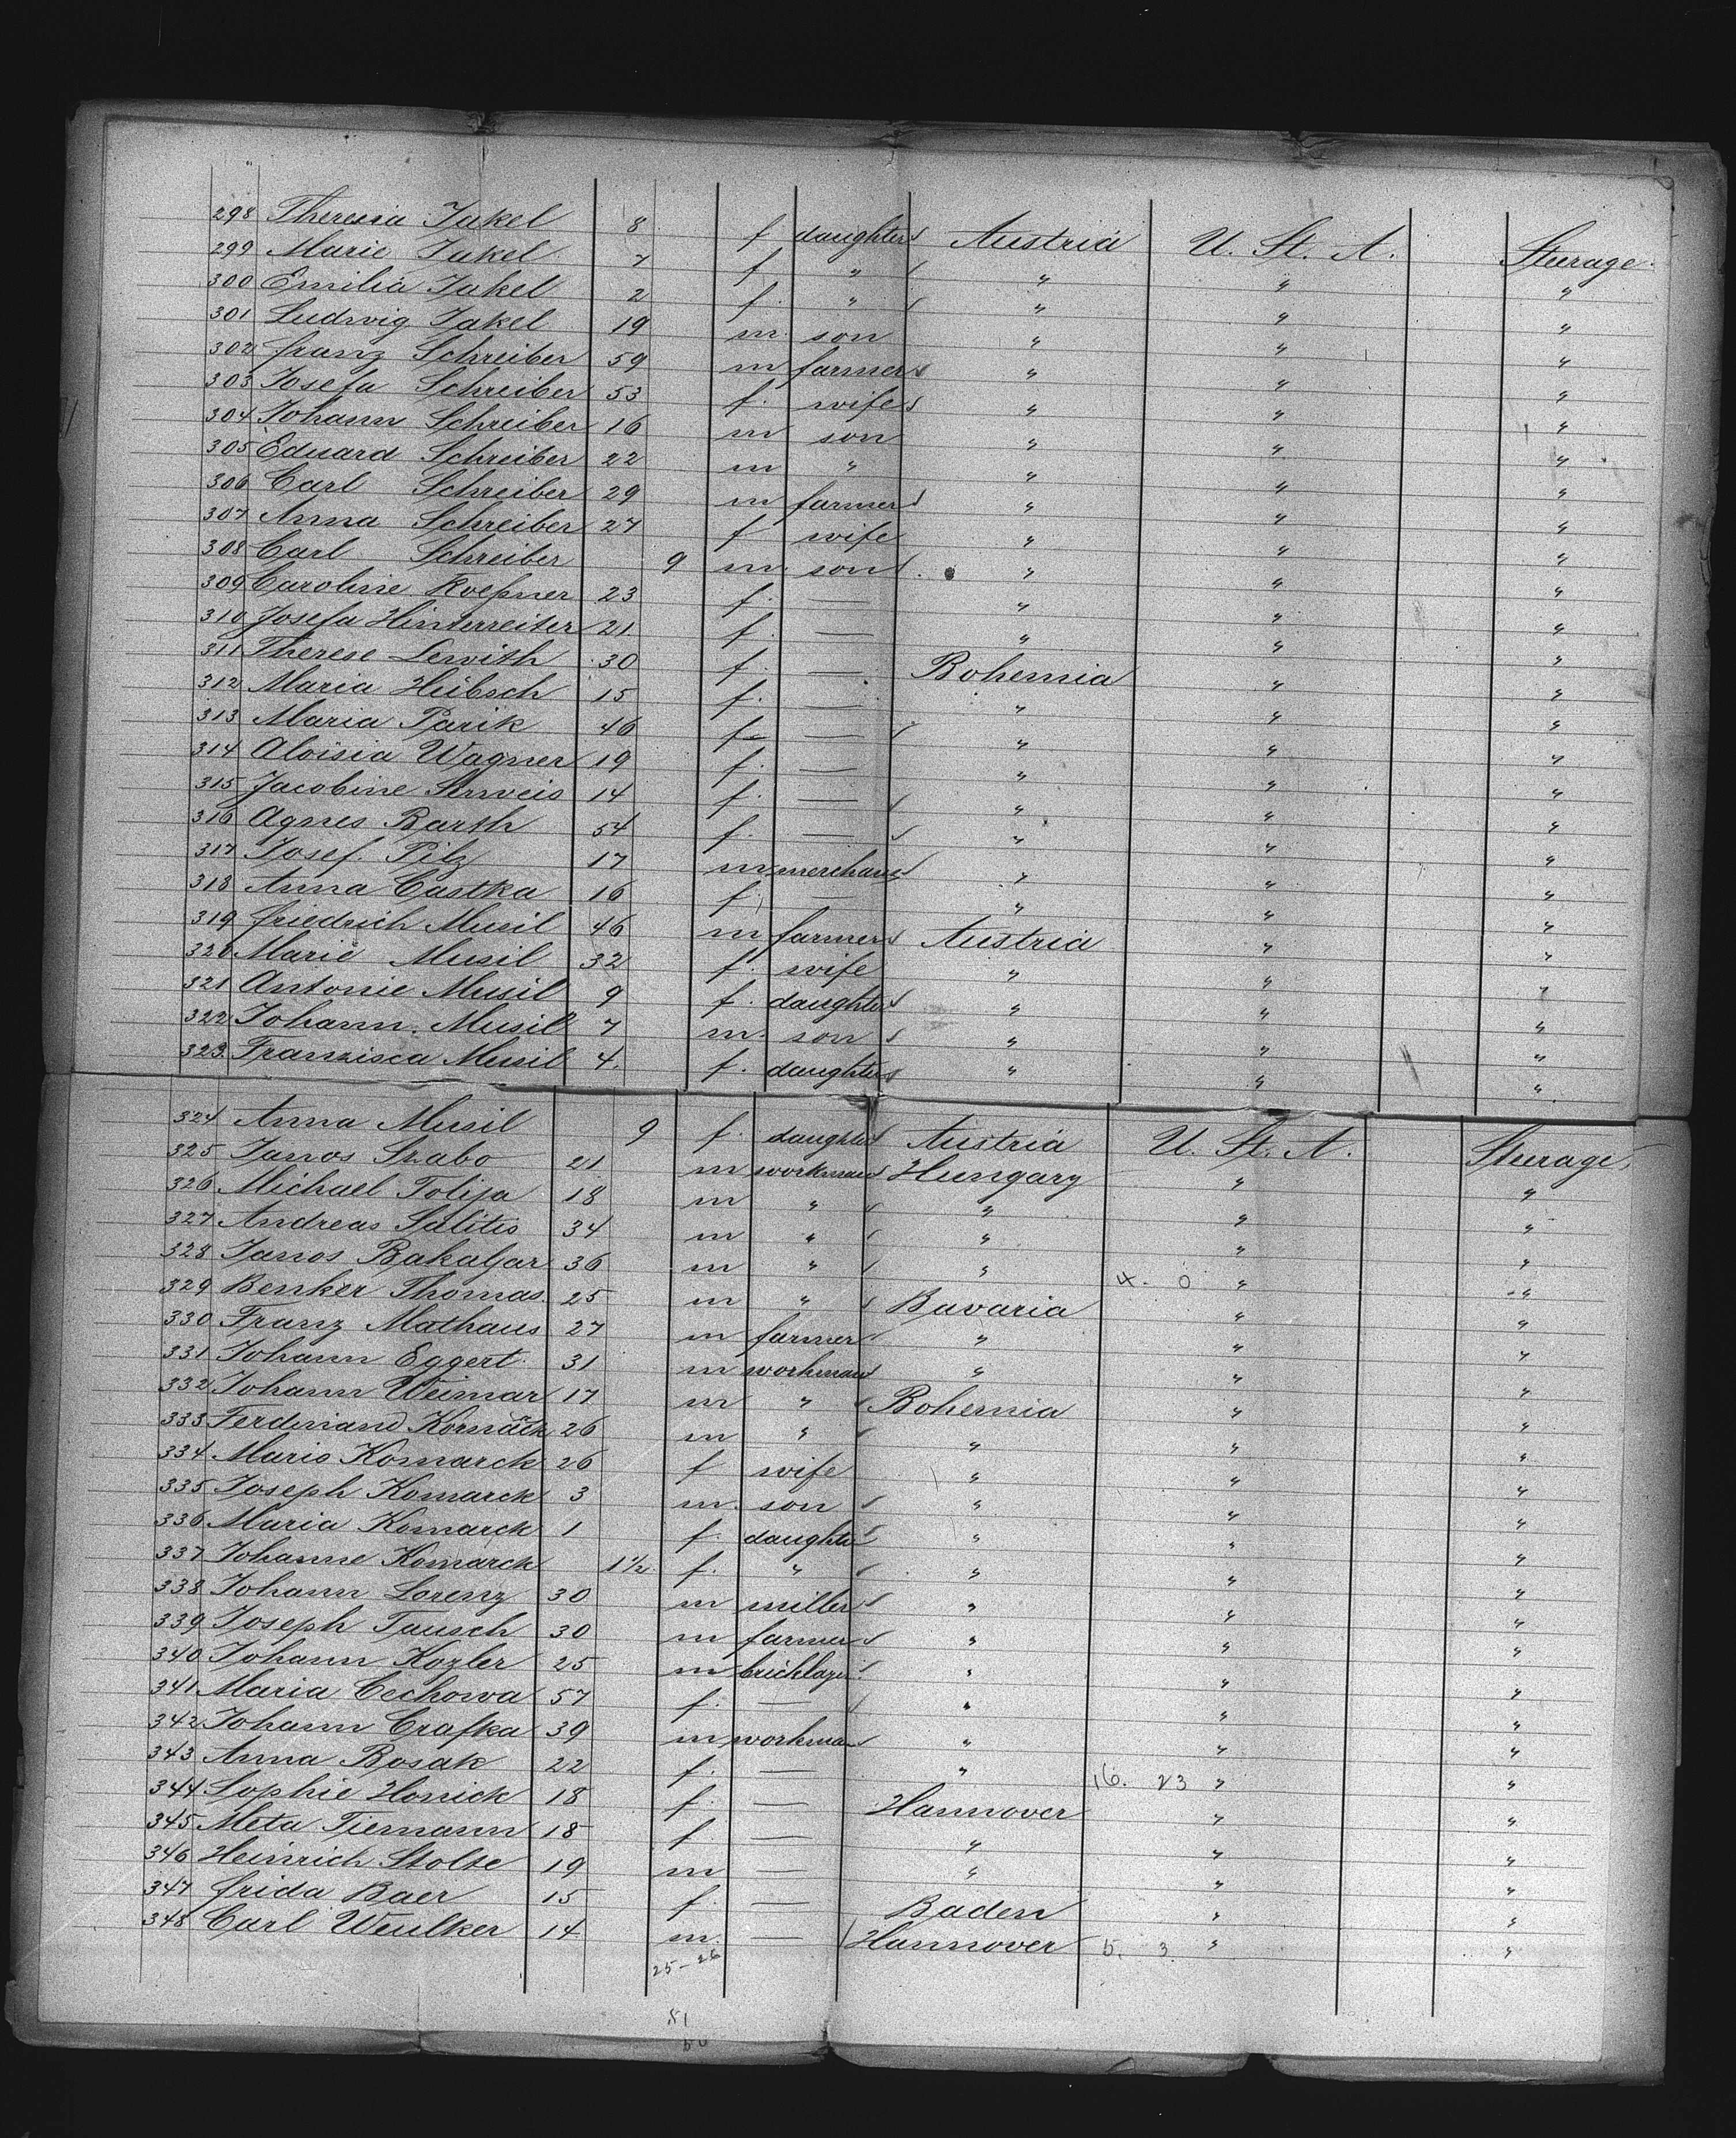 298 Theresia Jakel 8 f daughter Austria U. St. A. Steerage.
299 Marie Jakel 7 f " " " "
300 Emilia Jakel 2 f. " " " "
301 Ludwig Jakel 19 m. son " " "
302 Franz Schreiber 59 m farmer " " "
303 Josefa Schreiber 53 f. wife " " "
304 Johann Schreiber 16 m son " " "
305 Eduard Schreiber 22 m " " " "
306 Carl Schreiber 29 m farmer " " "
307 Anna Schreiber 27 f wife " " "
308 Carl Schreiber 9 m. son " " "
309 Caroline 23 f. — " " "
310 Josefa Hinterreiter 21 f. — " " "
311 Therese Lewith 30 f. — Bohemia " "
312 Maria Hübsch 15 f. — " " "
313 Maria Parik 46 f — " " "
314 Aloisia Wagner 19 f. — " " "
315 Jacobine 14 f. — " " "
316 Agnes Barth 54 f. — " " "
317 Josef. Pilz 17 m merchant " " "
318 Anna Castka 16 f — " " "
319 Friedrich Musil 46 m farmer Austria " "
320 Marie Musil 32 f. wife " " "
321 Antonie Musil 9 f. daughter " " "
322 Johann. Musil 7 m. son " " "
323. Franzisca Musil 4. f. daughter " " "
324 Anna Musil 9 f. daughter Austria U. St. A. Steerage.
325 Janos Szabo 21 m workman Hungary " "
326 Michael Tolija 18 m " " " "
327 Andreas Salitis 34 m " " " "
328 Janos Bakaljar 36 m " " 4. 0 " "
329 Benker Thomas. 25 m " Bavaria " "
330 Franz Mathaus 27 m farmer " " "
331 Johann Eggert. 31 m workman " " "
332 Johann Weimar 17 m " Bohemia " "
333 Ferdinand 26 m " " " "
334 Marie Komarck 26 f wife " " "
335 Joseph Komarck 3 m. son " " "
336 Maria Komarck 1 f. daughter " " "
337 Johanne Komarck 1½ f. " " " "
338 Johann Lorenz 30 m miller " " "
339 Joseph Tausch 30 m farmer " " "
340 Johann Kozler 25 m " " "
341 Maria Cechowa 57 f. — " " "
342 Johann Crafka 39 m workman " " "
343 Anna Bosak 22 f. — " 16. 23 " "
344 Sophie Honick 18 f. — Hannover " "
345 Meta Tiemann 18 f — " " "
346 Heinrich Stolte 19 m — " " "
347 Frida Baer 15 f. — Baden " "
348 Carl Weulker 14 m. — Hannover 5. 3 " "
25-26
51